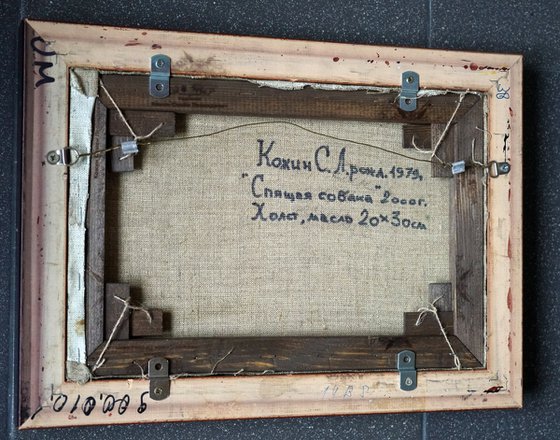 Кожин С.Л. рожд. 1979,
"Спящая собака" 2000г.
Холст, масло 20×30см